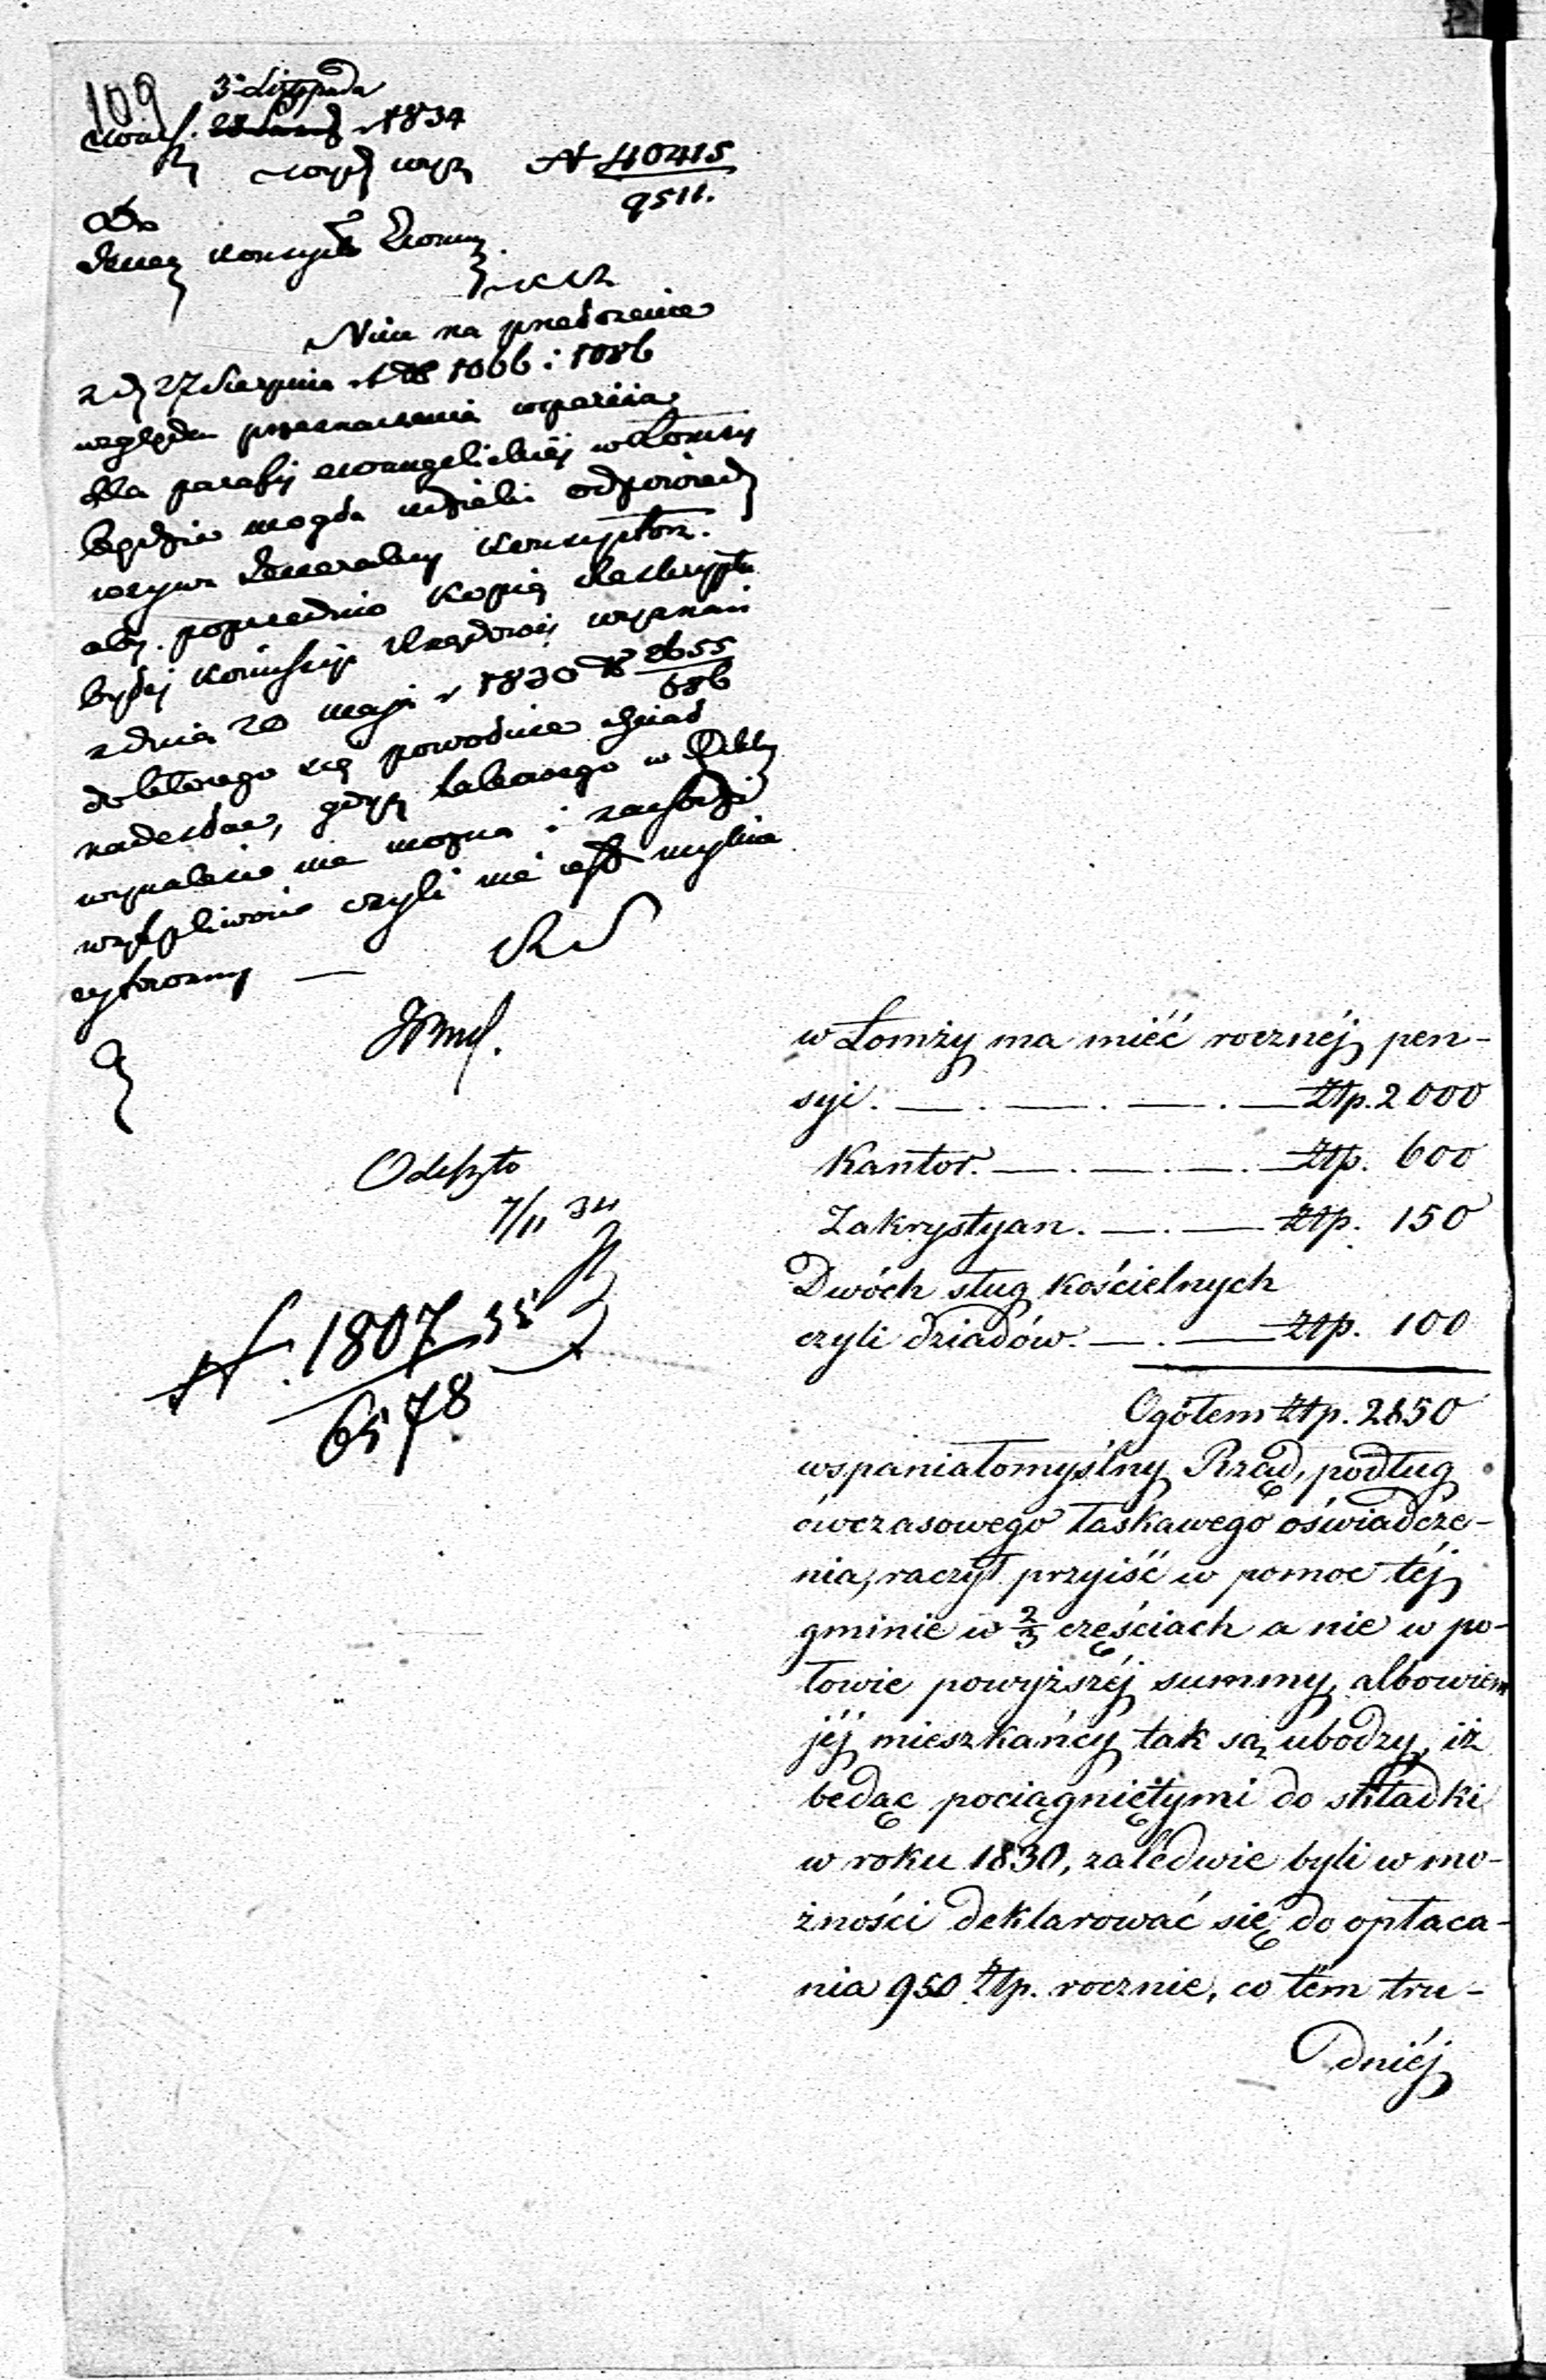 109
3 Listopada
1834
N 40415
9511.
Do
Nim na przedstawienie
z d. 27 Sierpnia N 1066 i 1086
względem przeznaczenia wsparcia
dla parafij ewangelickiéj w Łomży
będzie mogła udzielić odpowiedź
wzywa Generalny Konsystorz.
aby poprzednio kopią Reskryptu
byłéj Komissyi Rządowéj
z dnia 20 maja r 1830 N 2655
686
do którego się powołuje
nadesłać, gdyż takowego w
wynaleść nie można i zachodzi
wątpliwość czyli nie jest mylnie
cytowany —
Odeszło
7/11 34
N. 1807 35
6578
w Łomży ma miéć rocznéj pen-
syi. — . — . — . — Złp. 2000
Kantor. — . — . — . — Złp. 600
Zakrystyan. — . — Złp. 150
Dwóch sług kościelnych
czyli dziadów. — . — Złp. 100
Ogółem Złp. 2850
wspaniałomyślny Rząd, podług
ówczasowego łaskawego oświadcze-
nia, raczył przyiść w pomoc téj
gminie w 2/3 częściach a nie w po-
łowie powyższéj summy, albowiem
jéj mieszkańcy tak są ubodzy, iż
będąc pociągniętymi do składki
w roku 1830, zaledwie byli w mo-
żności deklarować się do opłaca-
nia 950 Złp. rocznie, co tém tru-
dniéj